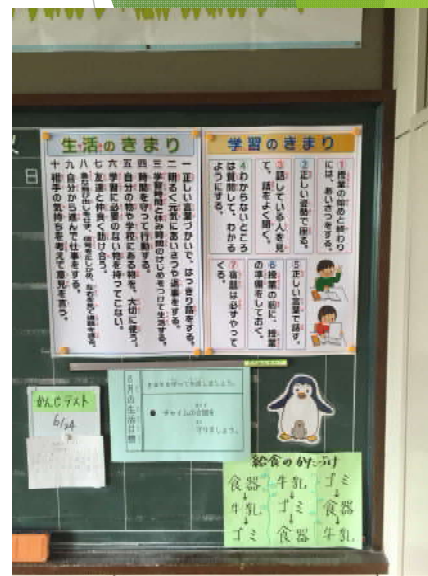 生活のきまり
一 正しい言葉づかいで、はっきり話をする。
二 明るく元気にあいさつや返事をする。
三 学習時間と休み時間のけじめをつけて生活する。
四 時間を守って行動する。
五 自分の物や学校にある物を、大切に使う。
六 学習に必要のない物を持ってこない。
七 友達と仲良く助け合う。
九 自分から進んで仕事をする。
十 相手の気持ちを考えて意見を言う。
学習のきまり
①授業の始めと終わり
には、あいさつをする。
②正しい姿勢で座る。
③話している人を見
て、話をよく聞く。
④わからないところ
は質問して、わかる
ようにする。
⑤正しい言葉で話す。
⑥授業の前に、授業
の準備をしておく。
⑦宿題は必ずやって
くる。
日
かんじテスト
6/24
6月の生活目標
● チャイムの合図を
守りましょう。
給食のかたづけ
食器 牛乳 ゴミ
↓ ↓ ↓
牛乳 ゴミ 食器
↓ ↓ ↓
ゴミ 食器 牛乳